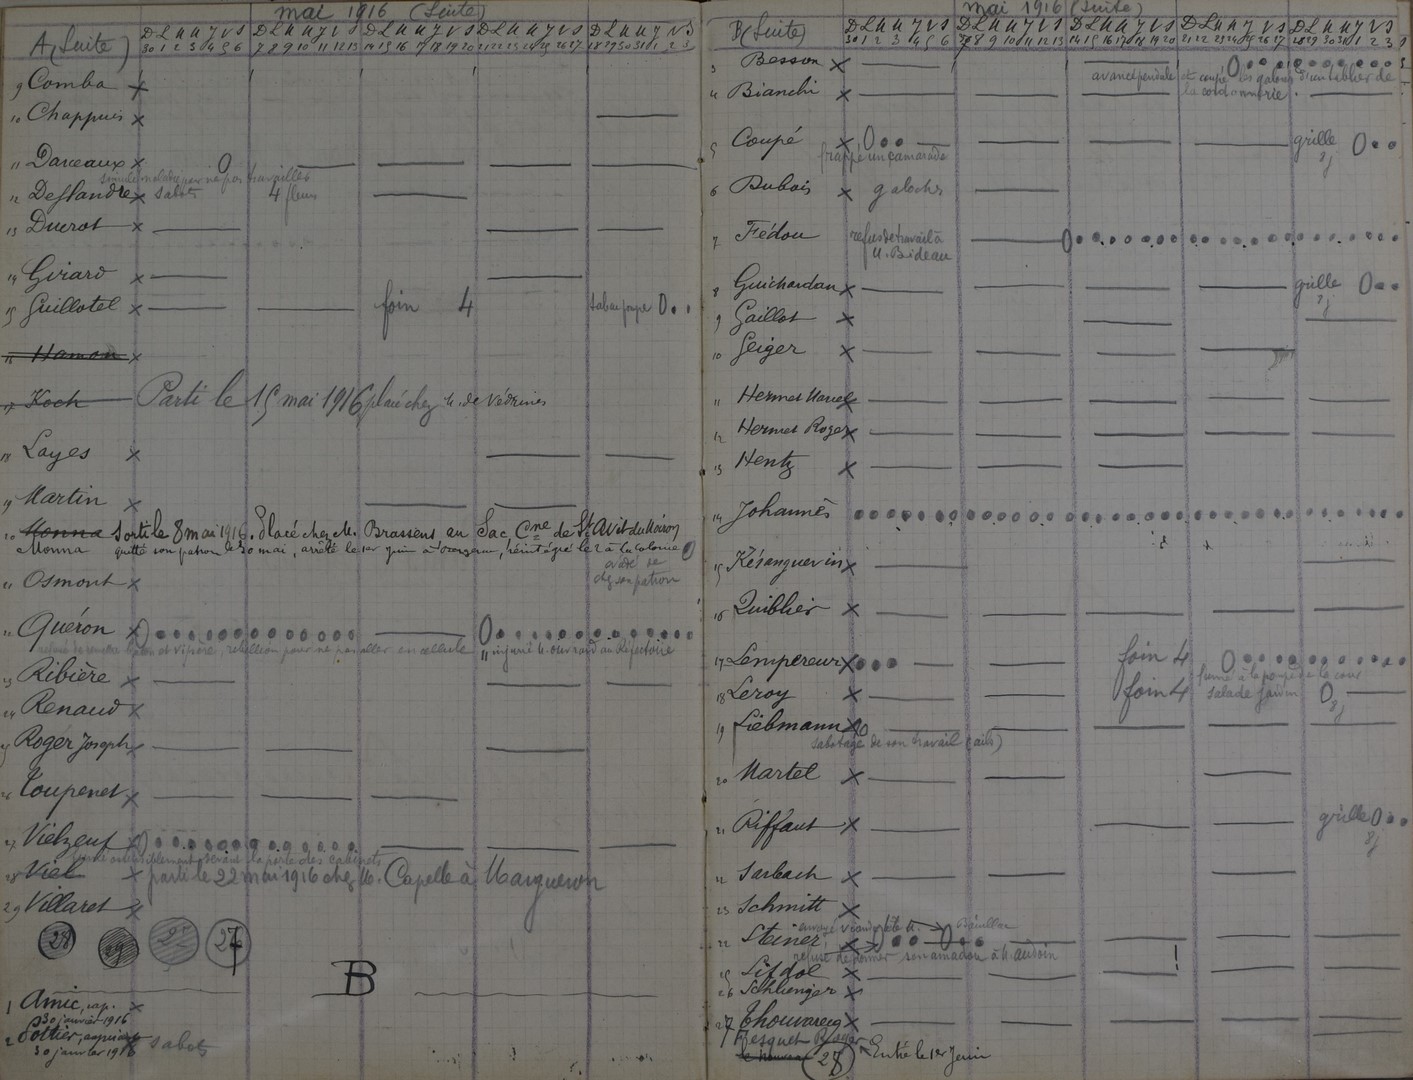 mai 1916 (Suite)
A (Suite)
D L M M J V S D L M M J V S D L M M J V S D L M M J V S D L M M J V S
30 1 2 3 4 5 6 7 8 9 10 11 12 13 14 15 16 17 18 19 20 21 22 23 24 25 26 27 28 29 30 31 1 2 3
9 Comba x
10 Chappuis x
11 Darceaux x 0
simule maladie pour ne pas travailler
12 Deslandre x sabots 4 fleurs
13 Ducrot x
14 Girard x
15 Guillotel x foin 4 0
16 Hamon x
17 Koch Parti le 15 mai 1916 placé chez M. de Védrines
18 Layes x
19 Martin x
20 Monna Sorti le 8 mai 1916. Placé chez M. Brassens au Sac, Cne de St Avit du Moiron
Monna quitté son patron le 30 mai, arrêté le 1er juin à Bergerac, réintégré le 2 à la Colonie 0
évadé de
chez son patron
21 Osmont x
22 Quéron x 0 0
et vipère, rébellion pour ne pas aller en cellule " injurié M. au Réfectoire
23 Ribière x
24 Renaud x
25 Roger Joseph x
26 Toupenet x
27 Vielzeuf x 0
devant la porte des cabinets
28 Viel x parti le 22 mai 1916 chez M. Capelle à Margueron
29 Villaret x
28 29 27
B
1 Amic, cap. x
30 janvier 1916
2 Pottier, x sabots
30 janvier 1916
mai 1916 (Suite)
B (Suite)
D L M M J V S D L M M J V S D L M M J V S D L M M J V S D L M M J V S
30 1 2 3 4 5 6 7 8 9 10 11 12 13 14 15 16 17 18 19 20 21 22 23 24 25 26 27 28 29 30 31 1 2 3
3 Besson x 0
et coupé les galons d'un tablier de
4 Bianchi x la cordonnerie.
5 Coupé x 0 grille 0
frappé un camarade 8j
6 Dubois x galoches
7 Fédou refus de travail à 0
M. Bideau
8 Guichardan x grille 0
8j
9 Gaillot x
10 Geiger x
11 Hermet Marcel x
12 Hermet Roger x
13 Hentz x
14 Johannès
15 Késanguevin x
16 Quiblier x
17 Lempereur x foin 4 0
fumé à la pompe de la cour
18 Leroy x foin 4 salade 0
8j
19 Liebmann x 0
sabotage de son travail (ails)
20 Martel x
21 Riffaut x grille 0
8j
22 Sarbach x
23 Schmitt x
24 Steiner x 0
refusé de donner son amadou à M. Audoin
25 Sifdol x
26 Schlienger x
27 Thouvarecq x
Fesquet
le nouveau 28 Entré le 1er Juin